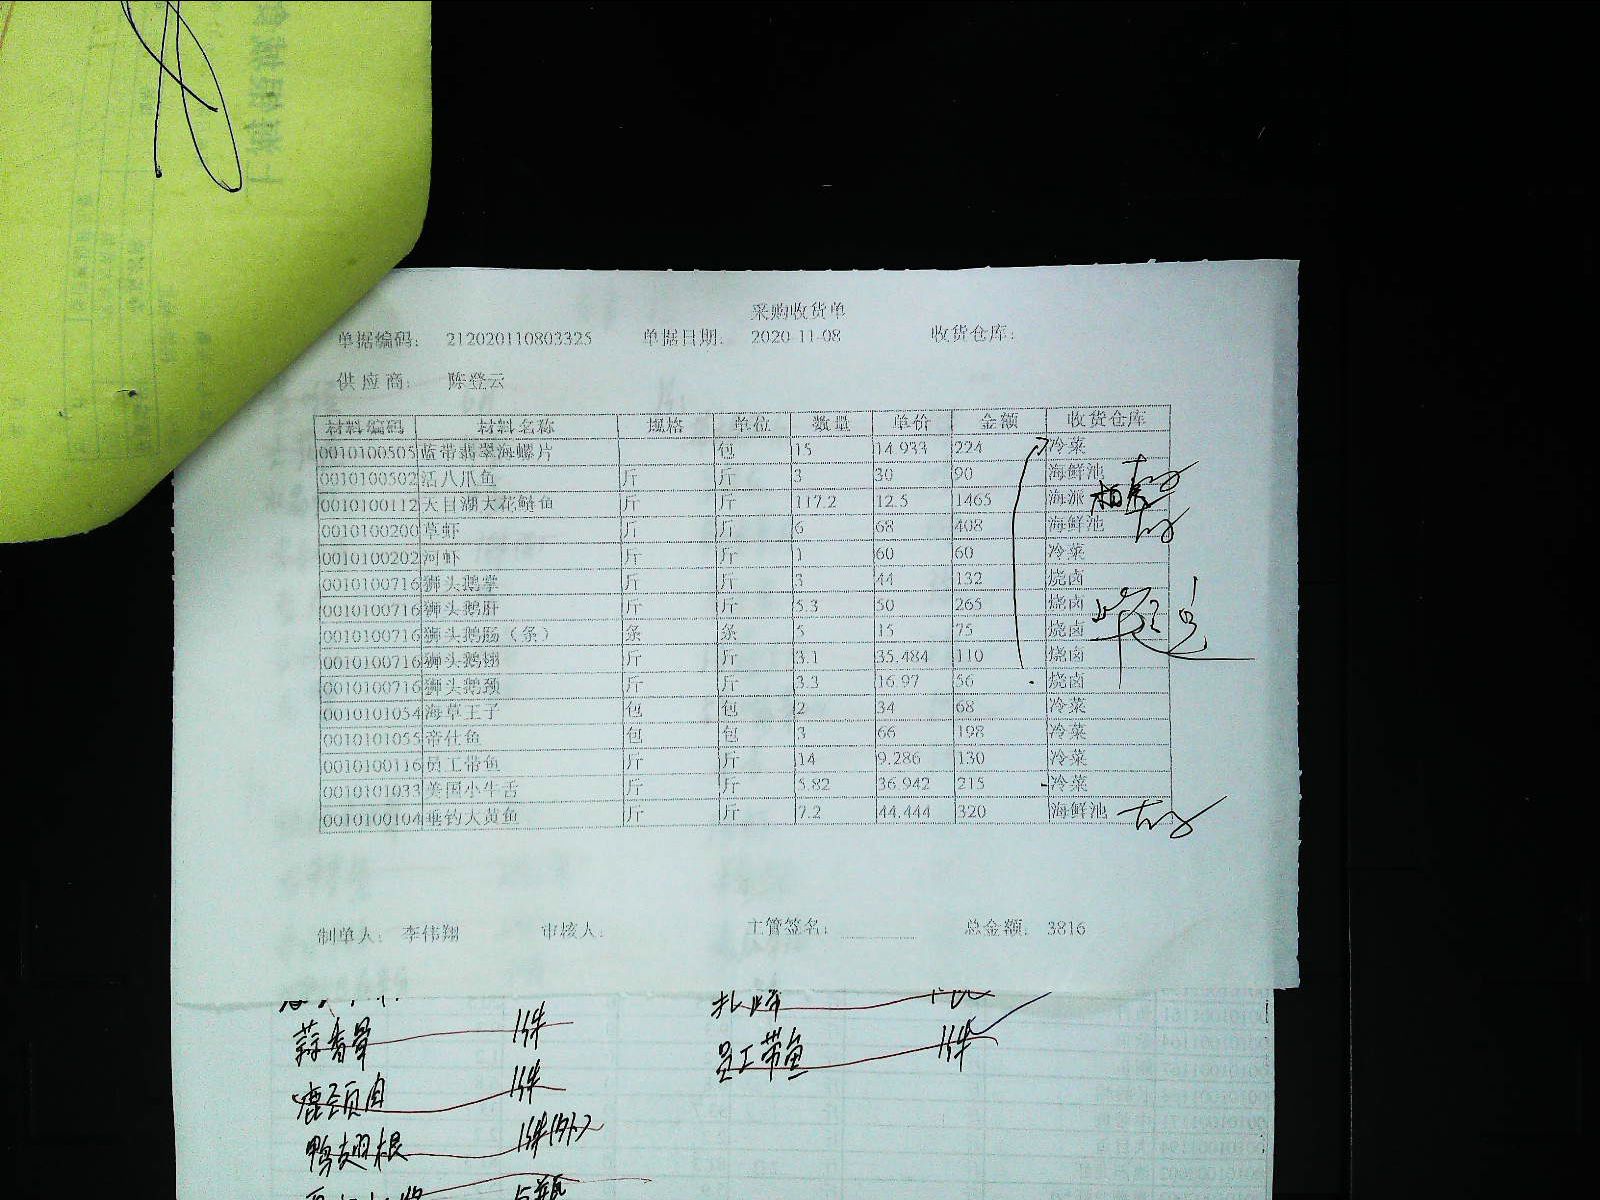 采购收货单
单据编码: 212020110803325 单据日期: 2020-11-08 收货仓库:
供应商: 陈登云
材料编码 材料名称 规格 单位 数量 单价 金额 收货仓库
0010100505 蓝带翡翠海螺片 包 15 14.933 224 冷菜
0010100502 活八爪鱼 斤 斤 3 30 90 海鲜池
0010100112 天目湖大花鲢鱼 斤 斤 117.2 12.5 1465 海派
0010100200 草虾 斤 斤 6 68 408 海鲜池
0010100202 河虾 斤 斤 1 60 60 冷菜
0010100716 狮头鹅掌 斤 斤 3 44 132 烧卤
0010100716 狮头鹅肝 斤 斤 5.3 50 265 烧卤
0010100716 狮头鹅肠（条） 条 条 5 15 75 烧卤
0010100716 狮头鹅翅 斤 斤 3.1 35.484 110 烧卤
0010100716 狮头鹅颈 斤 斤 3.3 16.97 56 烧卤
0010101054 海草王子 包 包 2 34 68 冷菜
0010101055 帝仕鱼 包 包 3 66 198 冷菜
0010100116 员工带鱼 斤 斤 14 9.286 130 冷菜
0010101033 美国小牛舌 斤 斤 5.82 36.942 215 冷菜
0010100104 垂钓大黄鱼 斤 斤 7.2 44.444 320 海鲜池
制单人: 李伟翔 审核人: 主管签名: 总金额: 3816
蒜香骨 1件
员工带鱼 1件
鹿颈肉 1件
鸭翅根 1件(外)